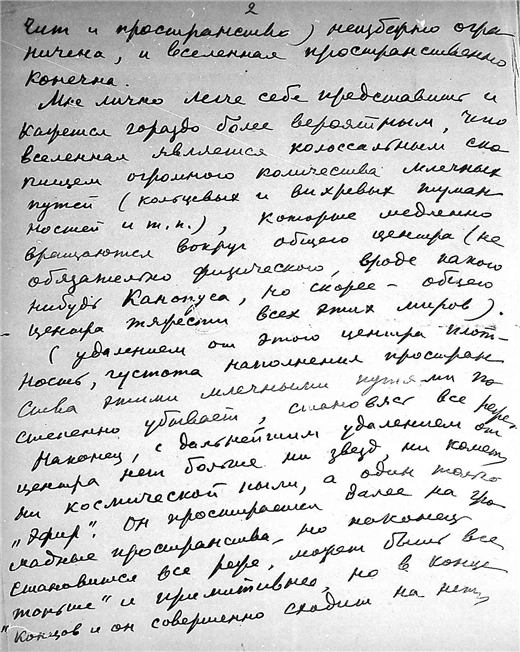 2
чит и пространство) неизбежно огра
ничена, и вселенная пространственно
конечна.
Мне лично легче себе представить и
кажется гораздо более вероятным, что
вселенная является колоссальным ско
пищем огромного количества млечных
путей (кольцевых и вихревых туман
ностей и т.п.), которые медленно
вращаются вокруг общего центра (не
обязательно физического, вроде какого
нибудь Канопуса, но скорее – общего
центра тяжести всех этих миров).
С удалением от этого центра плот-
ность, густота наполнения простран
ства этими млечными путями по
степенно убывает, становясь все реже.
Наконец, с дальнейшим удалением от
центра нет больше ни звезд, ни комет,
ни космической пыли, а один только
"эфир". Он простирается далее на гро
мадные пространства, но наконец
становится все реже, может быть все
"тоньше" и примитивнее, но в конце
концов и он совершенно сходит на нет,